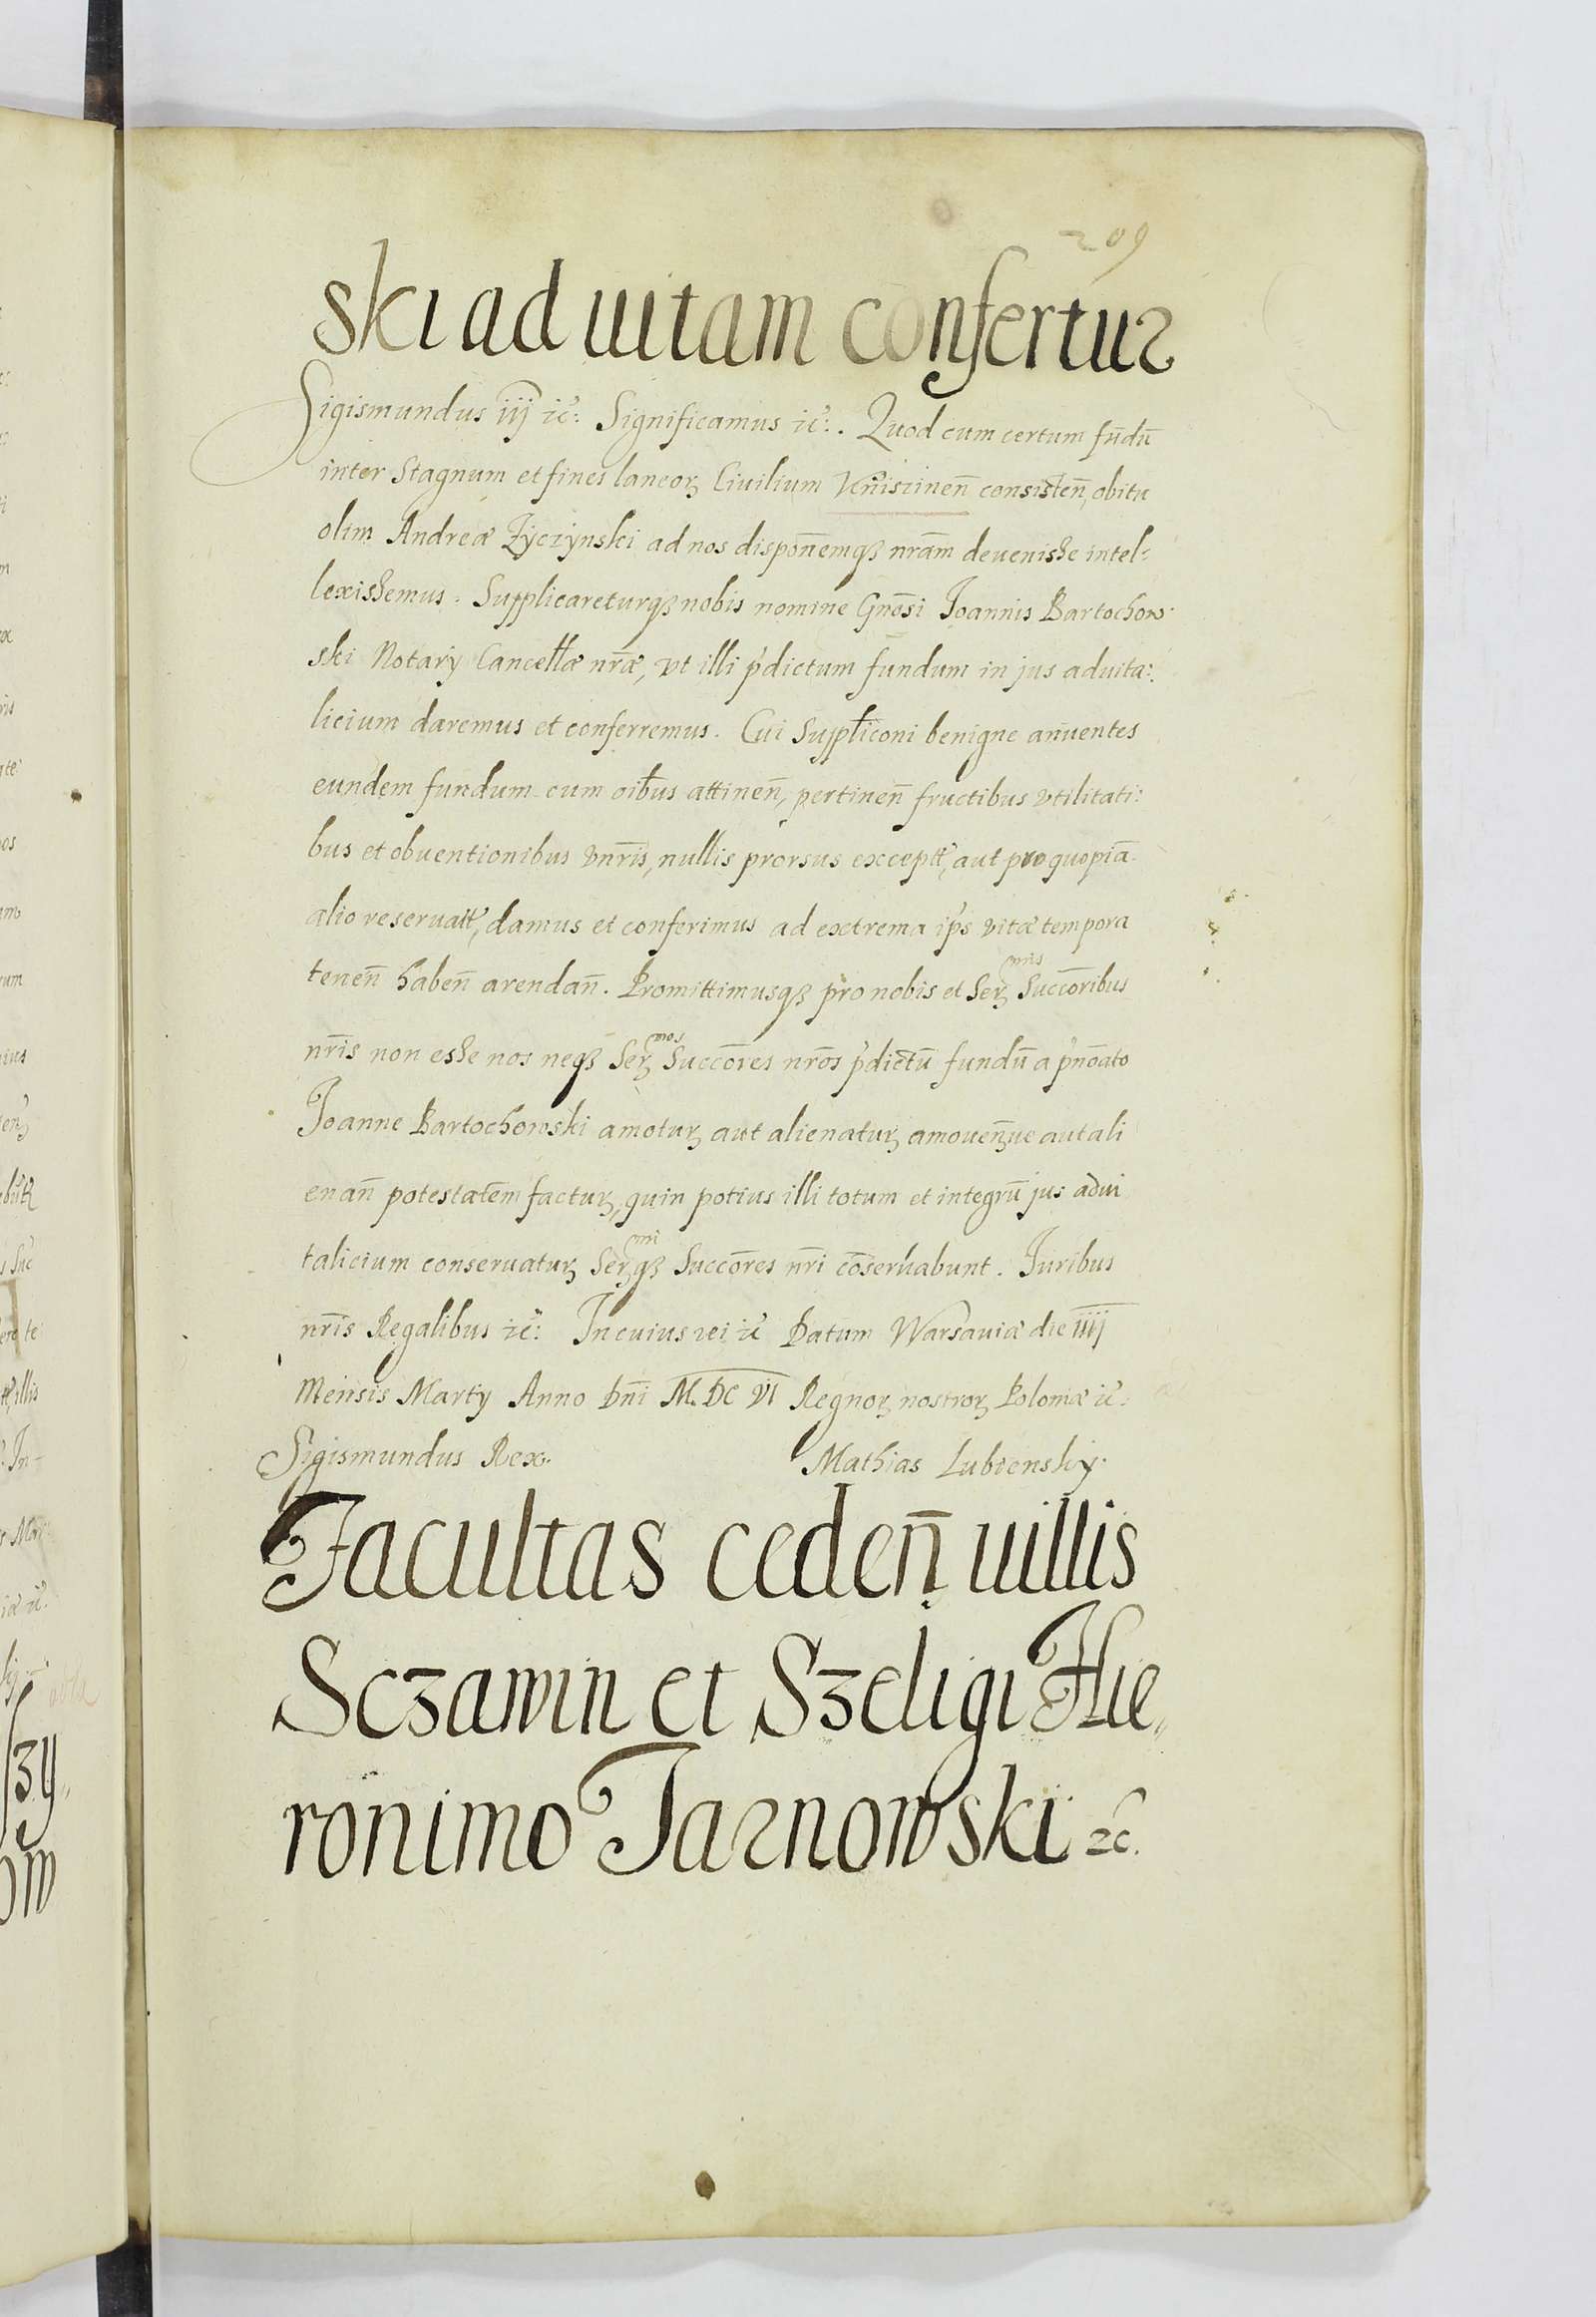 209
ski ad uitam confertur
Sigismundus iij ꝛc̃: Significamus ꝛc̃:. Quod cum certum fūdū
inter Stagnum et fines laneoꝝ Ciuilium Kniszineñ consisteñ, obitu
olim Andreæ Zyczynski ad nos dispoñemqꝫ nr̃am deuenisse intel=
lexissemus. Supplicareturqꝫ nobis nomine Gnõsi Joannis Bartochow
ski Notarÿ Cancellæ nr̃æ, vt illi p̃dictum fundum in jus aduita:
licium daremus et conferremus. Cui Suppliconi benigne anuentes
eundem fundum cum oibus attineñ, pertineñ fructibus vtilitati:
bus et obuentionibus vnr̃is, nullis prorsus exceptt̃, aut pro quopiã
alio reseruatt̃, damus et conferimus ad extrema ip̃s vitæ tempora
teneñ habeñ arendañ. Promittimusqꝫ pro nobis et Serꝝ mis Succõribus
nr̃is non esse nos neqꝫ Serꝝ mos Succõres nr̃os p̃dictũ fundũ a p̃nõato
Joanne Bartochowski amoturꝝ aut alienaturꝝ amouenꝝue aut ali
enañ potestatẽm facturꝝ, quin potius illi totum et integrũ jus adui
talicium conseruaturꝝ Serꝝqꝫ mi Succõres nr̃i cõseruabunt. Juribus
nr̃is Regalibus ꝛc̃: In cuius rei ꝛc̃ Datum Warsauiæ die iiij
Mensis Martÿ Anno Dñi M. DC VI Regnoꝝ nostroꝝ Poloniæ ꝛc̃.
Sigismundus Rex. Mathias Lubiensky.
Facultas cedeñ uillis
Sczawin et Szeligi Hie„
ronimo Jarnowski ꝛc.